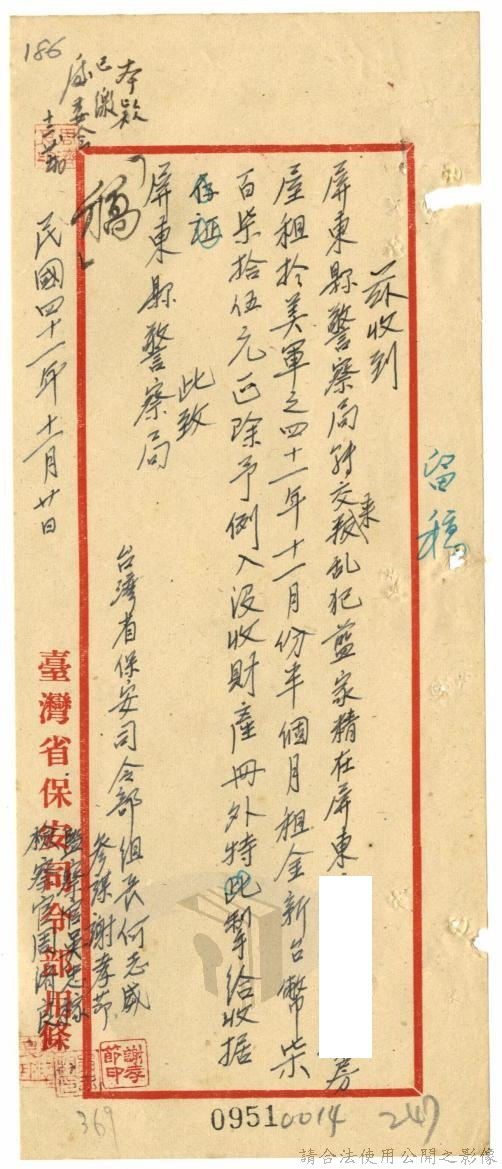 186
本款
已繳
茲收到
屏東縣警察局轉交來叛乱犯藍家精在屏東
房
屋租於美軍之四十一年十一月份半個月租金新台幣柒
百柒拾伍元正除予例入沒收財產冊外特此掣給收据
存証
此致
屏東縣警察局
台灣省保安司令部組長何志威
參謀謝孝節
監察官吳志
檢察官周濟良
「稿」
民國四十一年十一月廿日
留稿
臺灣省保安司令部用條
謝孝節印
369
0951
0014
247
請合法使用公開之影像